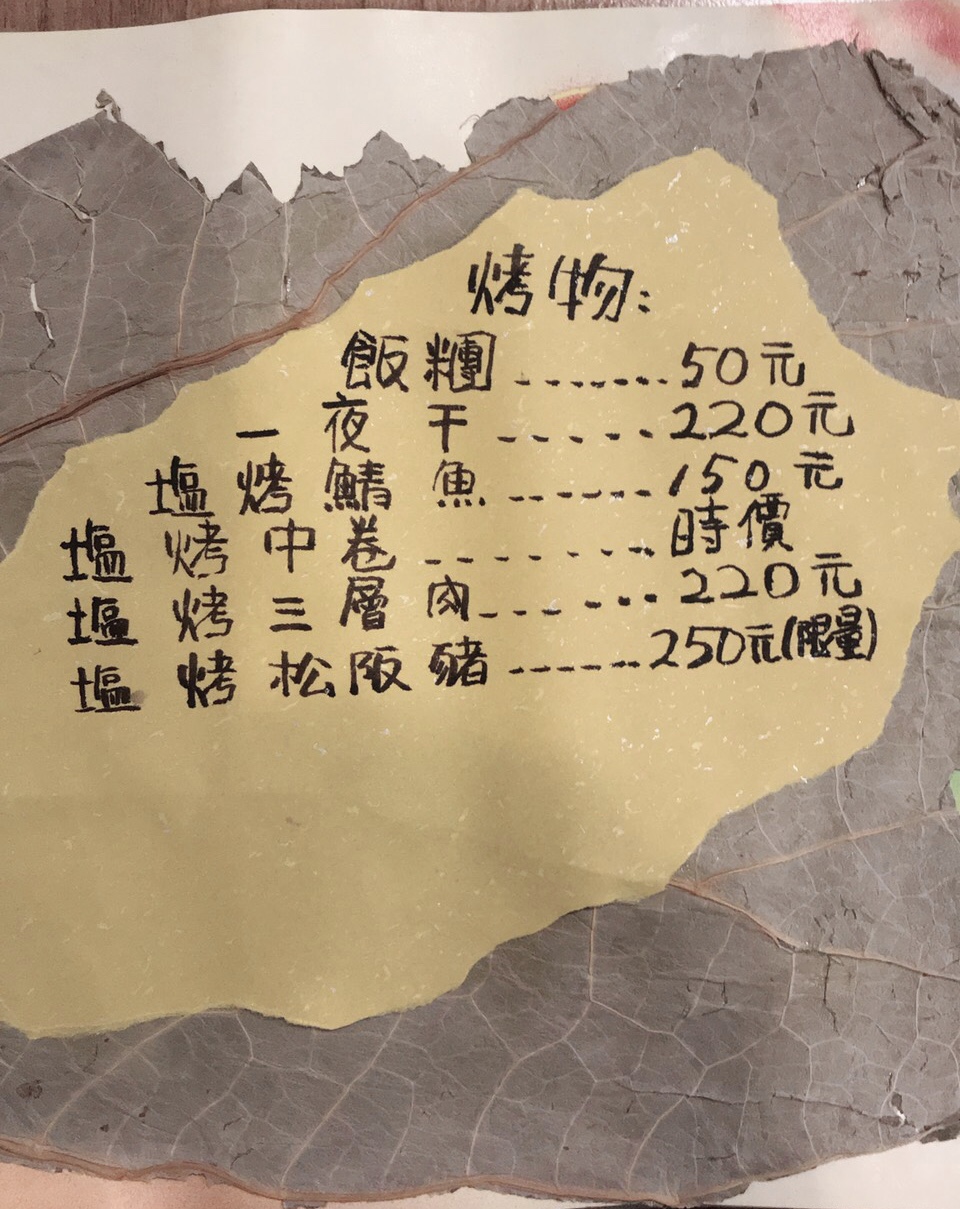 烤物:
飯糰......50元
一夜干......220元
塩烤鯖魚......150元
塩烤中卷......時價
塩烤三層肉......220元
塩烤松阪豬......250元(限量)